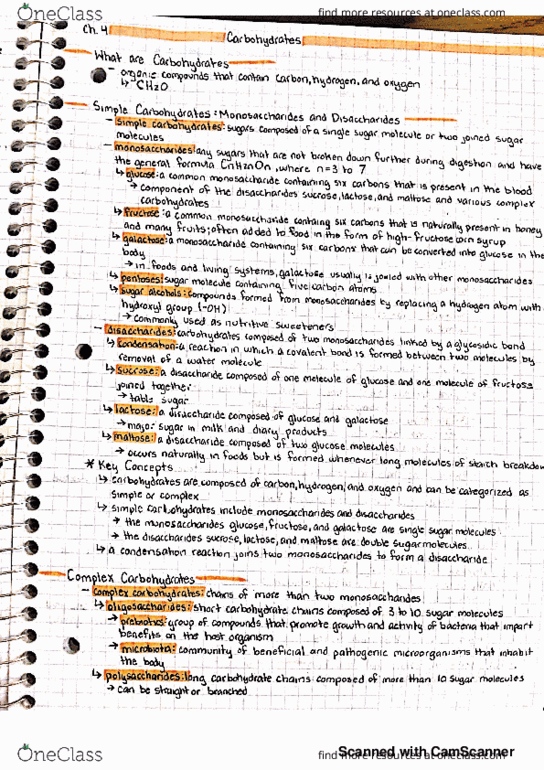 OneClass
find more resources at oneclass.com
Ch. 4
Carbohydrates
What are Carbohydrates
- organic compounds that contain carbon, hydrogen, and oxygen
↳ CH2O
Simple Carbohydrates: Monosaccharides and Disaccharides
- simple carbohydrates: sugars composed of a single sugar molecule or two joined sugar
molecules
- monosaccharides: any sugars that are not broken down further during digestion and have
the general formula CnH2nOn, where n=3 to 7
↳ glucose: a common monosaccharide containing six carbons that is present in the blood
→ component of the disaccharides sucrose, lactose, and maltose and various complex
carbohydrates
↳ fructose: a common monosaccharide containing six carbons that is naturally present in honey
and many fruits; often added to food in the form of high-fructose corn syrup
↳ galactose: a monosaccharide containing six carbons that can be converted into glucose in the
body
→ in foods and living systems, galactose usually is joined with other monosaccharides
↳ pentoses: sugar molecule containing five carbon atoms
↳ sugar alcohols: compounds formed from monosaccharides by replacing a hydrogen atom with
hydroxyl group (-OH)
→ commonly used as nutritive sweeteners
- disaccharides: carbohydrates composed of two monosaccharides linked by a glycosidic bond
↳ condensation: a reaction in which a covalent bond is formed between two molecules by
removal of a water molecule
↳ sucrose: a disaccharide composed of one molecule of glucose and one molecule of fructose
joined together
→ table sugar
↳ lactose: a disaccharide composed of glucose and galactose
→ major sugar in milk and diary products
↳ maltose: a disaccharide composed of two glucose molecules
→ occurs naturally in foods but is formed whenever long molecules of starch breakdow
* Key Concepts
↳ carbohydrates are composed of carbon, hydrogen, and oxygen and can be categorized as
simple or complex
↳ simple carbohydrates include monosaccharides and disaccharides
→ the monosaccharides glucose, fructose, and galactose are single sugar molecules
→ the disaccharides sucrose, lactose, and maltose are double sugar molecules
↳ a condensation reaction joins two monosaccharides to form a disaccharide
Complex Carbohydrates
- complex carbohydrates: chains of more than two monosaccharides
↳ oligosaccharides: short carbohydrate chains composed of 3 to 10 sugar molecules
→ prebiotics: group of compounds that promote growth and activity of bacteria that impart
benefits on the host organism
→ microbiota: community of beneficial and pathogenic microorganisms that inhabit
the body
↳ polysaccharides: long carbohydrate chains composed of more than 10 sugar molecules
→ can be straight or branched
OneClass
find more resources at oneclass.com
Scanned with CamScanner